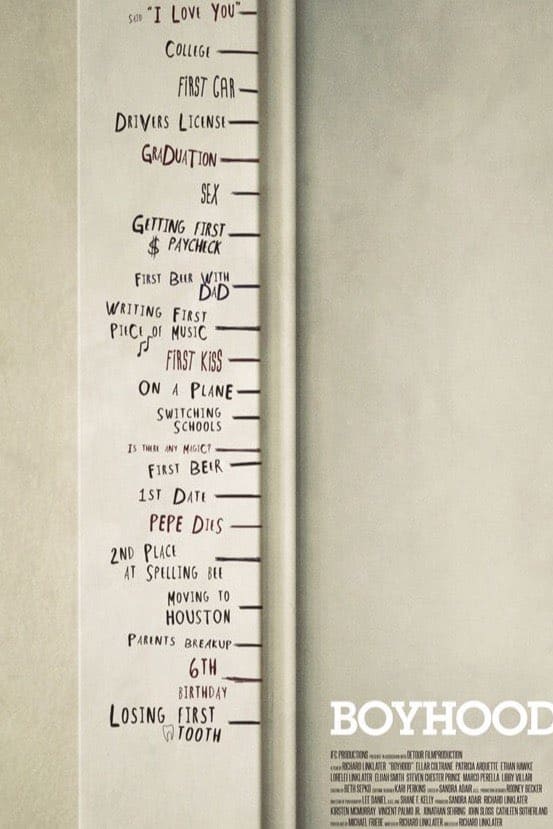 SAID "I LOVE YOU"
COLLEGE
FIRST CAR
DRIVERS LICENSE
GRADUATION
SEX
GETTING FIRST
$ PAYCHECK
FIRST BEER WITH
DAD
WRITING FIRST
PIECE OF MUSIC
FIRST KISS
ON A PLANE
SWITCHING
SCHOOLS
IS THERE ANY MAGIC?
FIRST BEER
1ST DATE
PEPE DIES
2ND PLACE
AT SPELLING BEE
MOVING TO
HOUSTON
PARENTS BREAKUP
6TH
BIRTHDAY
LOSING FIRST
TOOTH
BOYHOOD
IFC PRODUCTIONS PRESENTS IN ASSOCIATION WITH DETOUR FILMPRODUCTION
A FILM BY RICHARD LINKLATER "BOYHOOD" ELLAR COLTRANE PATRICIA ARQUETTE ETHAN HAWKE
LORELEI LINKLATER ELIJAH SMITH STEVEN CHESTER PRINCE MARCO PERELLA LIBBY VILLARI
CASTING BY BETH SEPKO EDITOR KARI PERKINS EDITED BY SANDRA ADAIR A.C.E. PRODUCTION DESIGNER RODNEY BECKER
LEE DANIEL AND SHANE F. KELLY SANDRA ADAIR RICHARD LINKLATER
KIRSTEN MCMURRAY VINCENT PALMO JR. JONATHAN SEHRING JOHN SLOSS CATHLEEN SUTHERLAND
MICHAEL FRIEBE RICHARD LINKLATER RICHARD LINKLATER